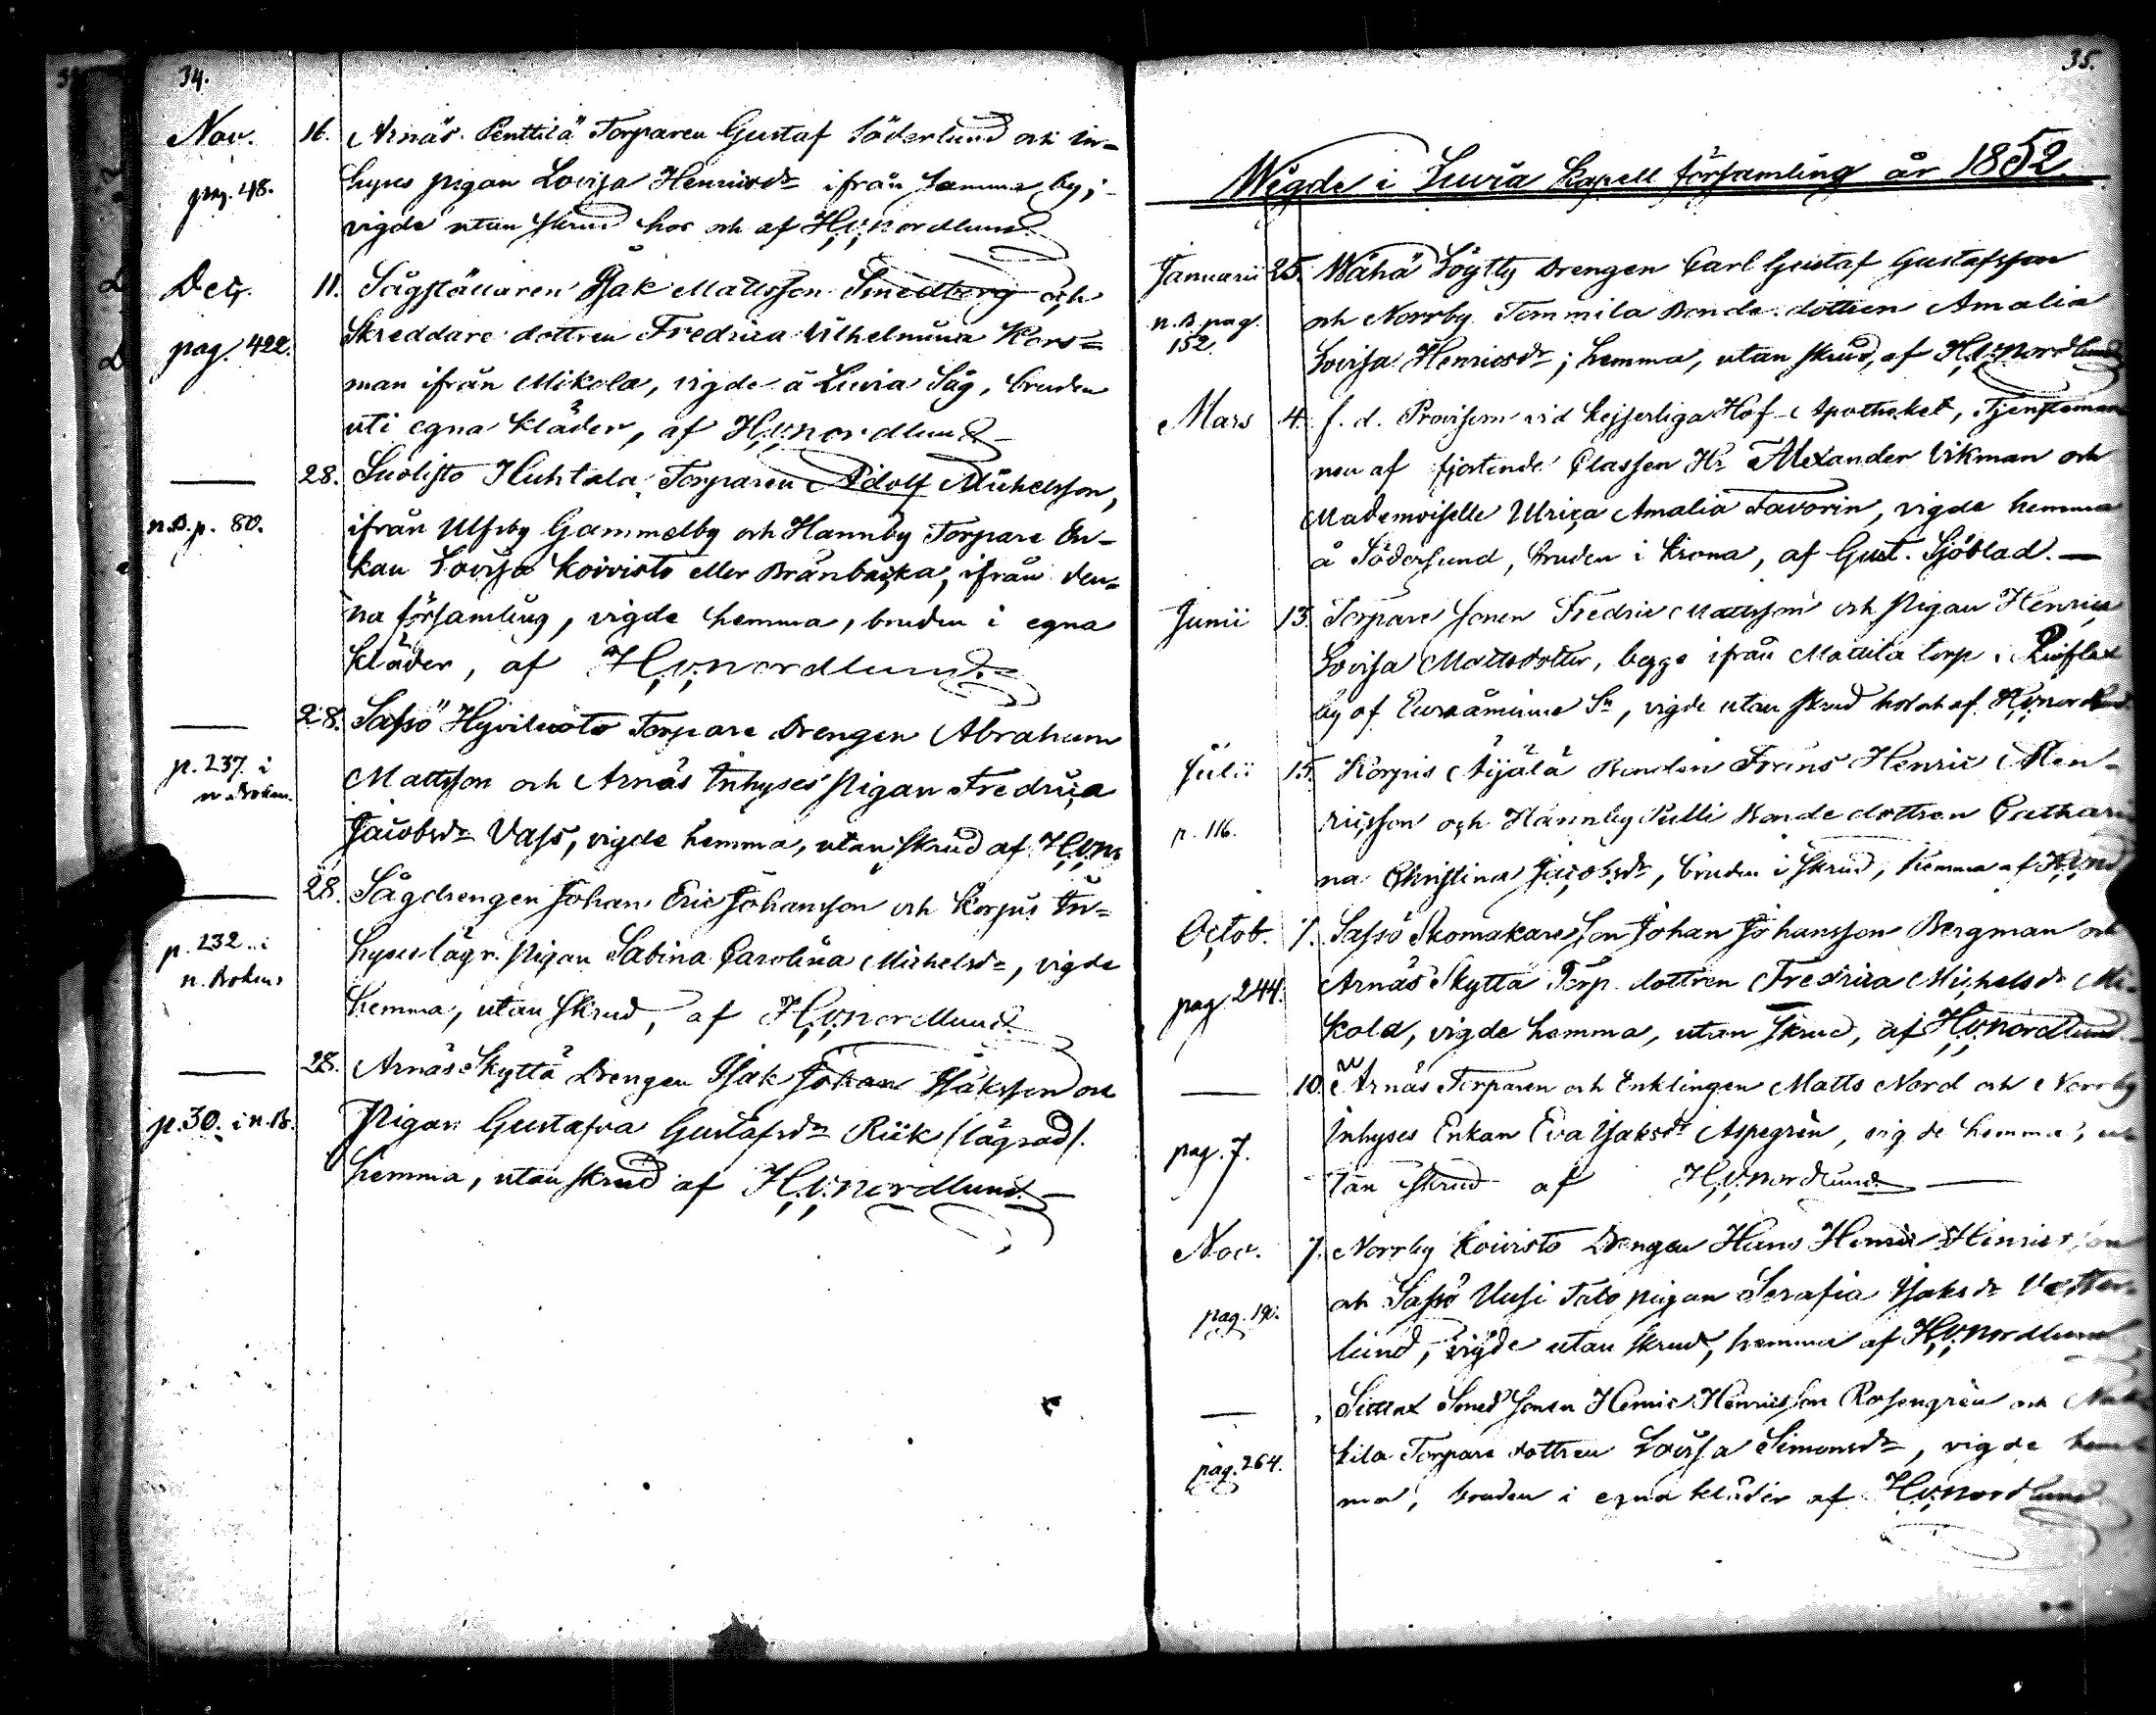 34.
Nov. 16. Arnäs Penttilä Torparen Gustaf Söderlund och in-
pag. 48. hyses pigan Lovisa Henricsdr ifrån samma by;
vigde utan skrud hos och af H.V. Nordlund
Dec. 11. Sågställaren Isak Mattsson Smedberg och
pag. 422. Skreddare dottren Fredrica Vilhelmina Kors-
man ifrån Mikola, vigde å Luvia Såg, bruden
uti egna kläder, af H.V. Nordlund
— 28. Suolisto Huhtala Torparen Adolf Michelsson,
n.B.p. 80. ifrån Ulfsby Gammelby och Hannby Torpare En-
kan Lovisa Koivisto eller Bränbacka, ifrån den-
na församling, vigde hemma, bruden i egna
kläder, af H.V. Nordlund.
— 28. Sassö Hyviluoto Torpare Drengen Abraham
p. 237 i n. Boken. Mattsson och Arnäs Inhyses pigan Fredrica
Jacobsdr Vass, vigde hemma, utan skrud af H.V.N.
— 28. Sågdrengen Johan Eric Johansson och Korpis In-
p. 232 i n. Boken hyses lägr. pigan Sabina Carolina Michelsdr, vigde
hemma, utan skrud, af H.V. Nordlund
— 28. Arnäs Skyttä Drengen Isak Johan Isaksson och
p. 30. i n.B. Pigan Gustafva Gustafsdr Riik /lägrad/.
hemma, utan skrud af H.V. Nordlund. —
35.
Wigde i Luvia Kapell församling år 1852.
Januarii 25. Wähä Löytty Drengen Carl Gustaf Gustafsson
n.B. pag. 152. och Norrby Tommila Bonde dottren Amalia
Lovisa Henricsdr; hemma, utan skrud, af H.V. Nordlund
Mars 4. f. d. Provisorn vid Kejserliga Hof-Apotheket, Tjensteman
nen af fjortende Classen Hr Alexander Vikman och
Mademoiselle Ulrica Amalia Favorin, vigde hemma
å Södersund, bruden i krona, af Gust. Sjöblad. —
Junii 13. Torpare sonen Fredric Mattsson och pigan Henrica
Lovisa Mattsdotter, begge ifrån Mattila torp i
by af Euraåminne Sn, vigde utan skrud hos och af H.V. Nordlund
Julii 15. Korpis Äijälä Bonden Frans Henric Hen-
p. 116. ricsson och Hannby Pulli Bonde dottren Cathari
na Christina Jacobsdr, bruden i skrud, hemma af H.V. Nord
Octob. 1. Sassö Skomakare Son Johan Johansson Bergman och
pag 244. Arnäs Skyttä Torp. dottren Fredrica Michelsdr Mi-
kola, vigde hemma, utan skrud, af H.V. Nordlund.
— 10. Arnäs Torparen och Enklingen Matts Nord och Norrby
pag. 7. Inhyses Enkan Eva Isaksdr Aspegrèn, vigde hemma, u
tan skrud af H.V. Nordlund. —
Nov. 7. Norrby Koivisto Drengen Hans Henric Henricsson
pag. 190. och Sassö Uusi Talo pigan Serafia Isaksdr Vester-
lund, vigde utan skrud, hemma af H.V. Nordlund
— Smed Sonen Henric Henricsson Rosengrèn och
pag. 264. kila Torpare dottren Lovisa Simonsdr, vigde hem
ma, bruden i egna kläder af H.V. Nordlund